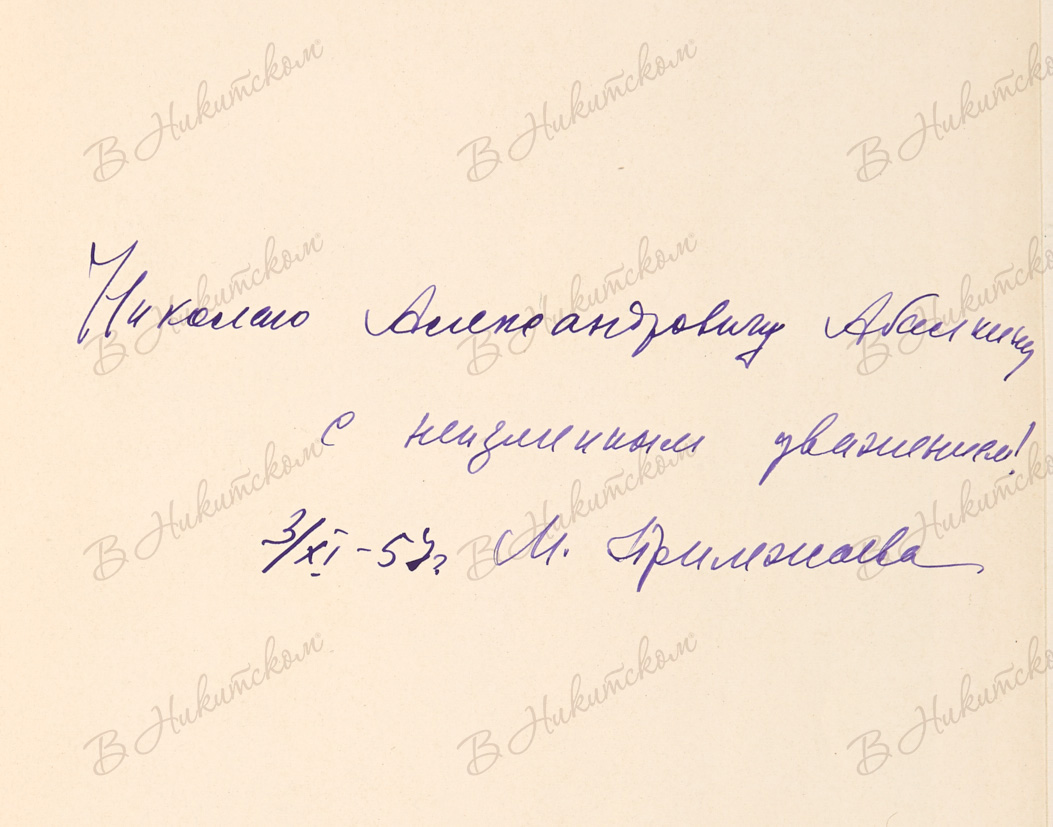 В Никитском В Никитском В Никитском
Николаю Александровичу Абалкину
В Никитском В Никитском В Никитском
с неизменным уважением!
В Никитском В Никитском В Никитском
3/XI-57г. М. Прилежаева
В Никитском В Никитском В Никитском